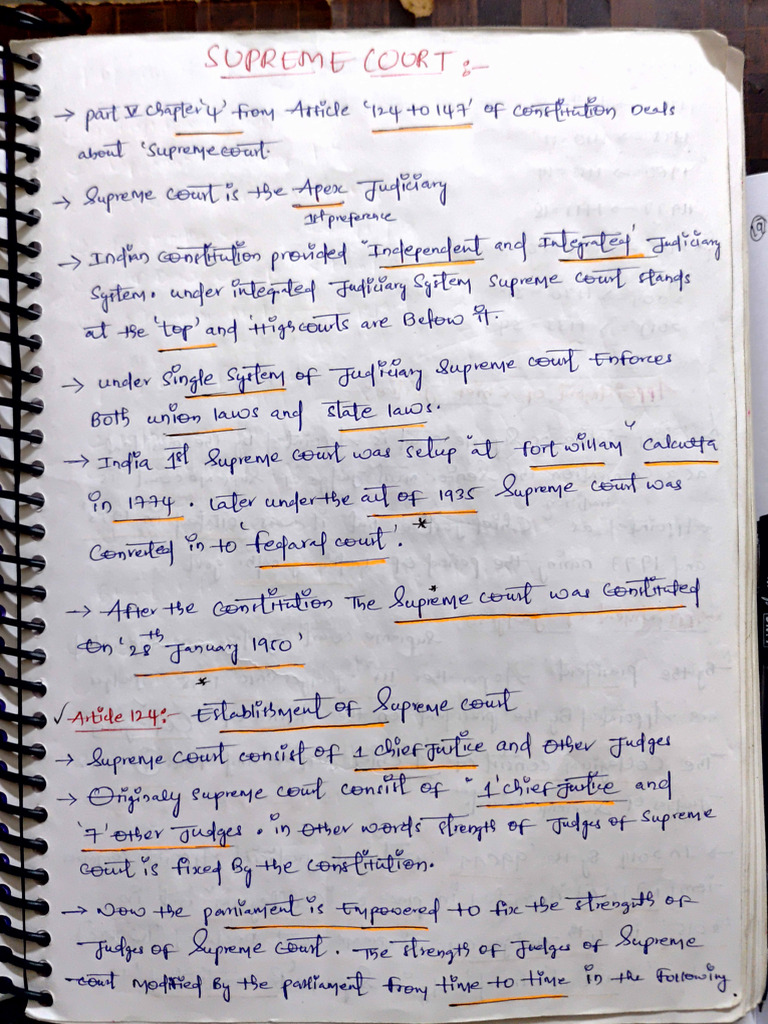 SUPREME COURT :-
→ part V chapter '4' from Article '124 to 147' of constitution Deals
about 'Supreme court.
→ Supreme court is the Apex Judiciary
1st preference
→ Indian constitution provided "Independent and Integrated" Judiciary
System. under integrated Judiciary System Supreme court stands
at the 'top' and High courts are Below it.
→ under Single System of Judiciary Supreme court Enforces
Both union laws and state laws.
→ India 1st Supreme court was setup "at fort willam" calcutta
in 1774. later under the act of 1935 Supreme court was
Converted in to 'fedaral court'. *
→ After the constitution The Supreme court was constituted
On '28th January 1950'
*
*
✓ Article 124:- Establishment of Supreme court
→ Supreme court consist of 1 chief Justice and other Judges
→ Originaly supreme court consist of "1' chief Justice and
'7' other Judges. in other words strength of Judges of Supreme
court is fixed By the constitution.
→ Now the parliament is Empowered to fix the strength of
Judges of Supreme court. The strength of Judges of Supreme
court modified By the parliament from time to time in the following
19